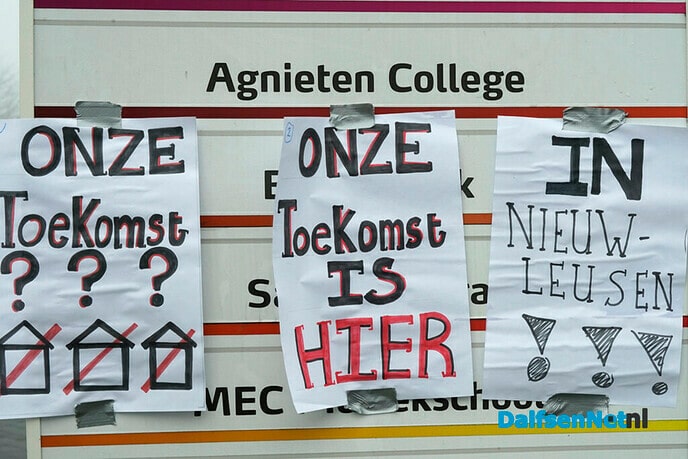 Agnieten College
ONZE
Toekomst
? ? ?
ONZE
Toekomst
IS
HIER
IN
NIEUW-
LEUSEN
! ! !
MEC
DalfsenNet.nl